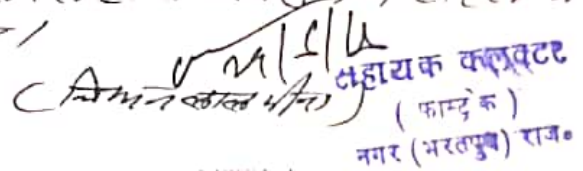 (चिमन लाल मीना)
सहायक कलक्टर
(फास्ट्रेक)
नगर (भरतपुर) राज०